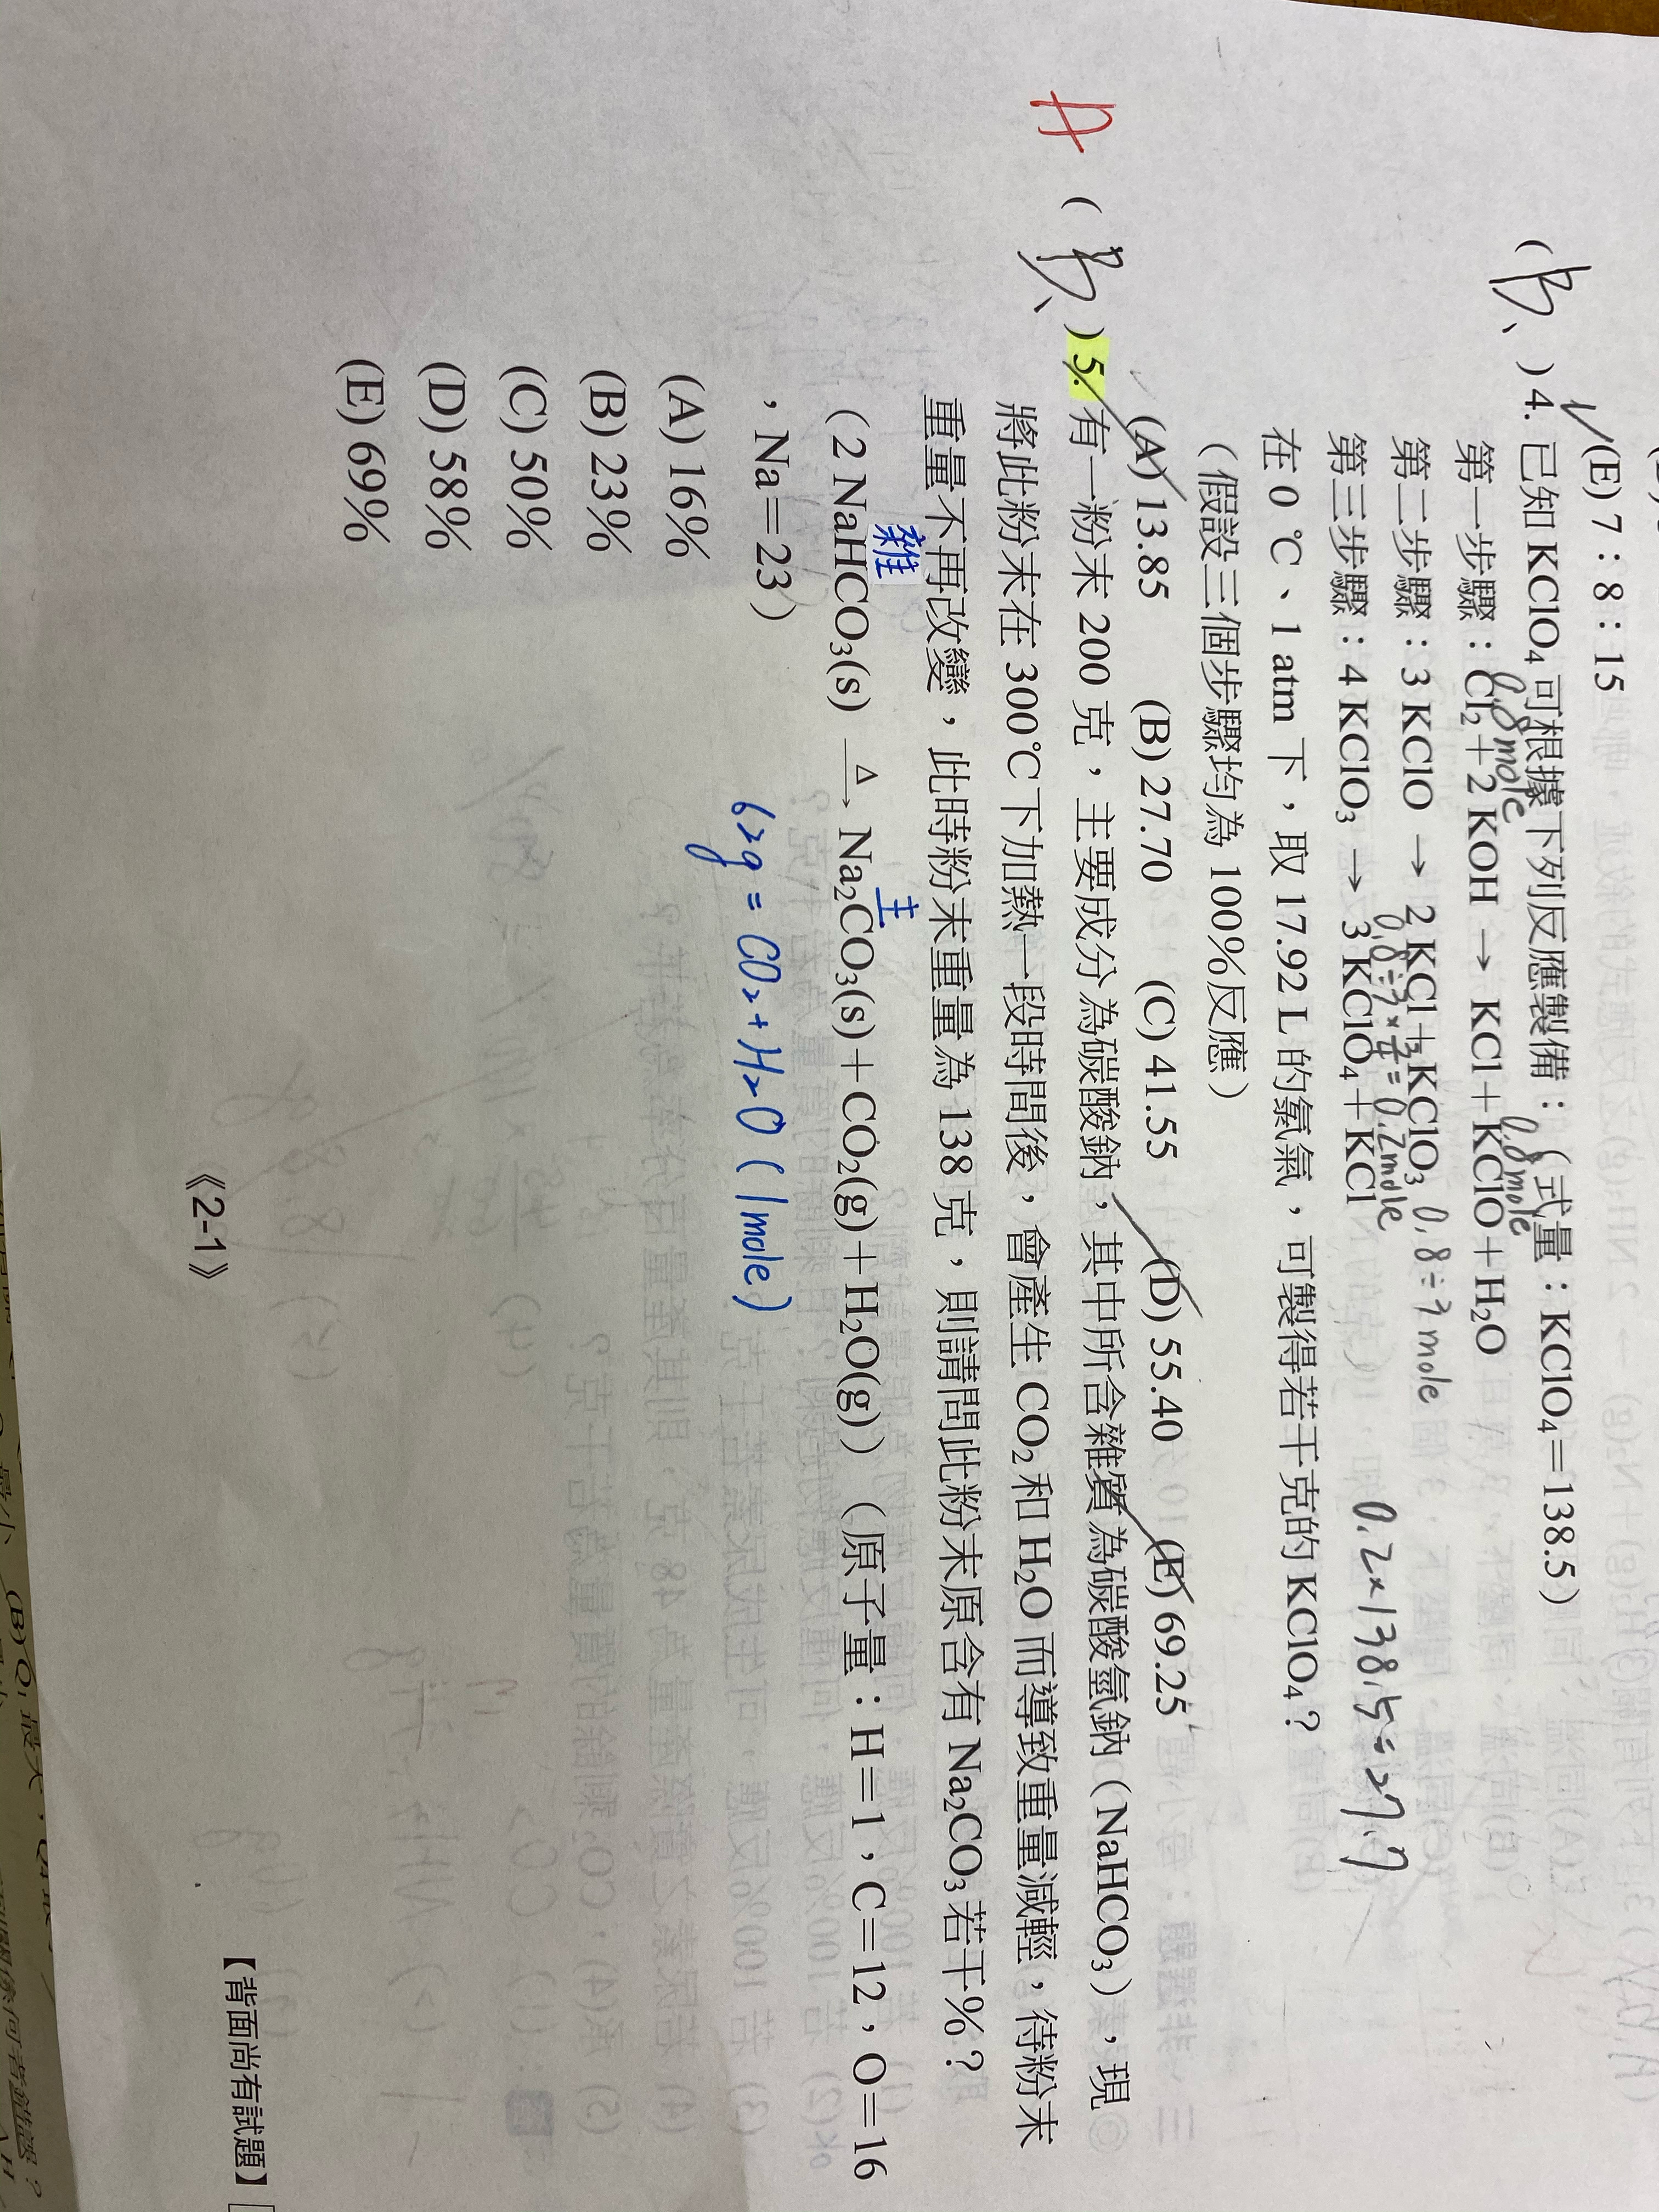 (E) 7：8：15
( B )4. 已知 KClO₄ 可根據下列反應製備：（式量：KClO₄＝138.5）
0.8mole 0.8mole
第一步驟：Cl₂＋2 KOH → KCl＋KClO＋H₂O
第二步驟：3 KClO → 2 KCl＋KClO₃ 0.8÷3 mole
0.8÷3×3/4=0.2mole
第三步驟：4 KClO₃ → 3 KClO₄＋KCl 0.2×138.5=27.7
在 0 ℃、1 atm 下，取 17.92 L 的氯氣，可製得若干克的 KClO₄？
（假設三個步驟均為 100%反應）
(A) 13.85 (B) 27.70 (C) 41.55 (D) 55.40 (E) 69.25
A ( B )5. 有一粉末 200 克，主要成分為碳酸鈉，其中所含雜質為碳酸氫鈉（NaHCO₃），現
將此粉末在 300℃下加熱一段時間後，會產生 CO₂ 和 H₂O 而導致重量減輕，待粉末
重量不再改變，此時粉末重量為 138 克，則請問此粉末原含有 Na₂CO₃ 若干%？
雜 主
（2 NaHCO₃(s) △→ Na₂CO₃(s)＋CO₂(g)＋H₂O(g)）（原子量：H＝1，C＝12，O＝16
，Na＝23）
62g = CO₂+H₂O (1mole)
(A) 16%
(B) 23%
(C) 50%
(D) 58%
(E) 69%
《2-1》
【背面尚有試題】